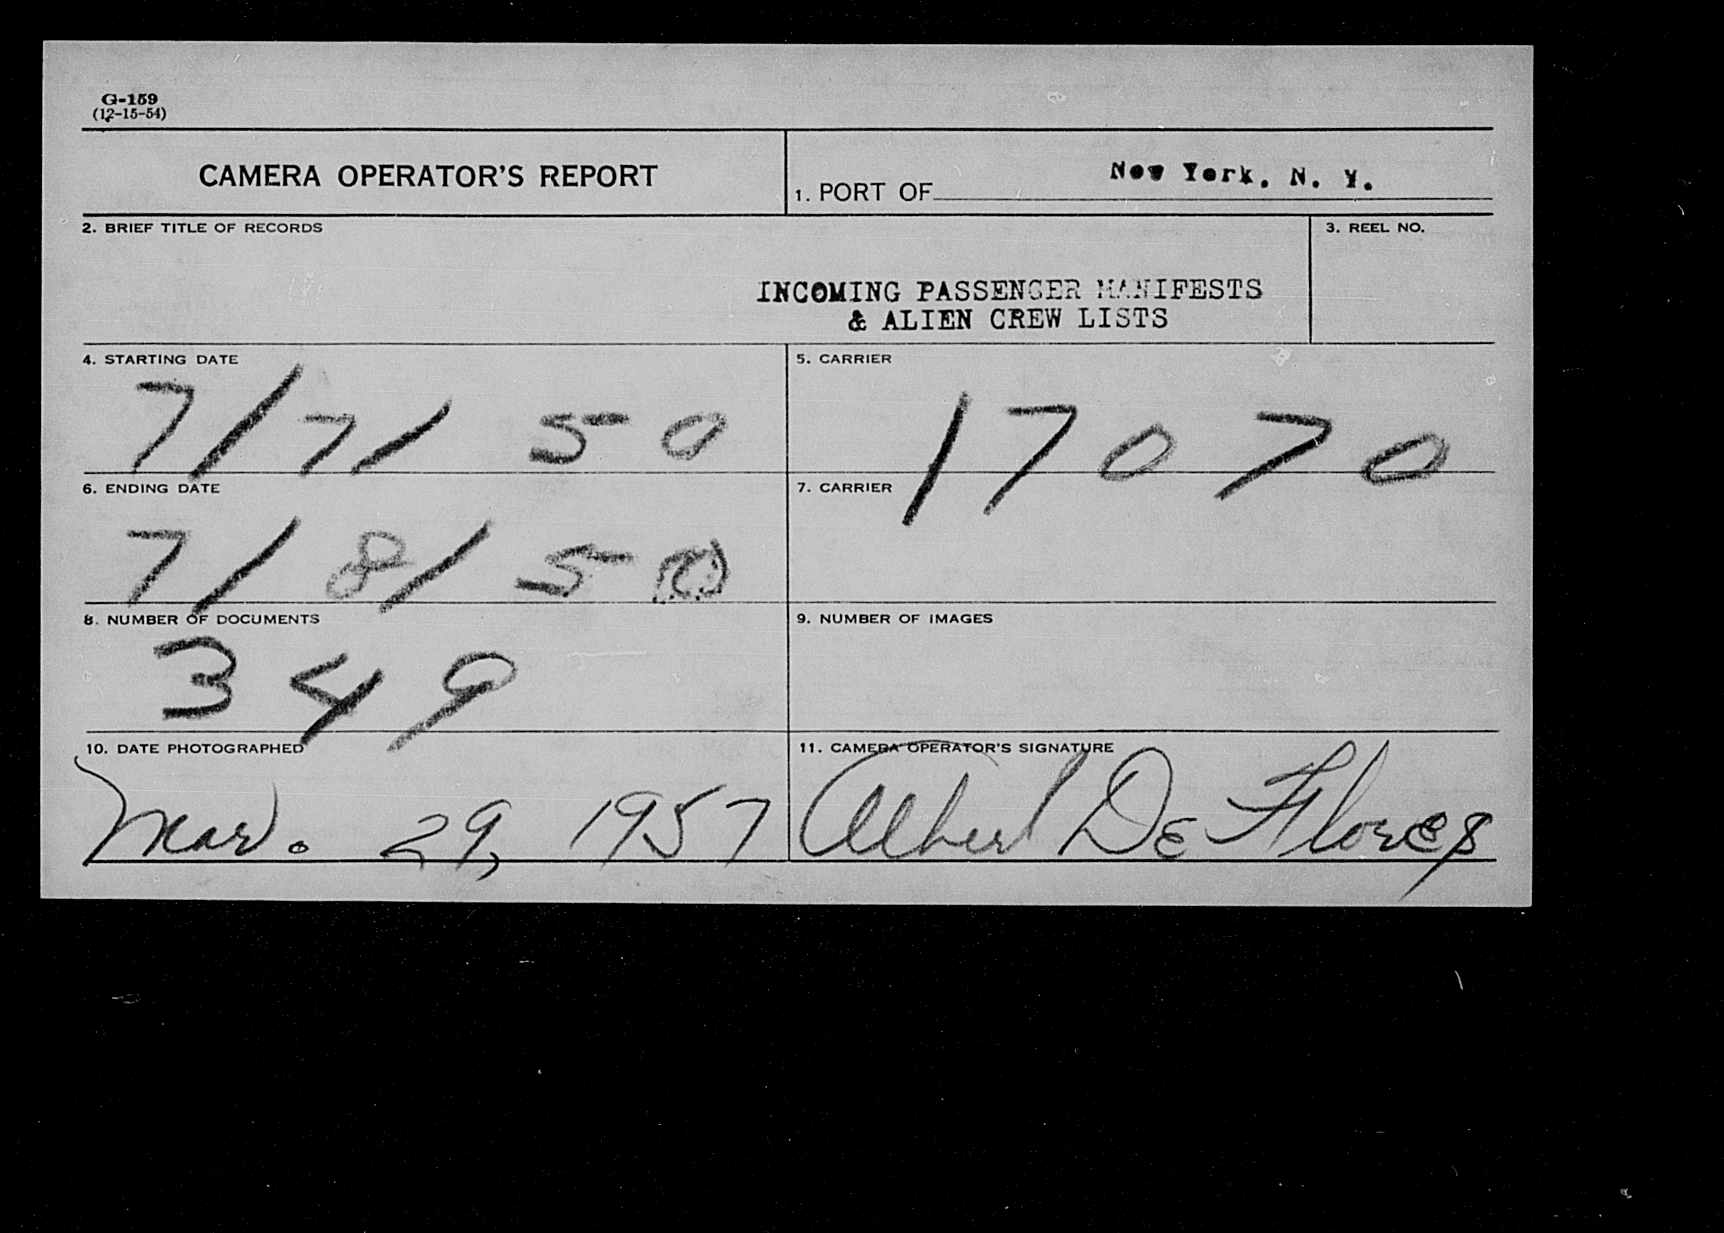 G-159
(12-15-54)
CAMERA OPERATOR'S REPORT
1. PORT OF New York, N. Y.
2. BRIEF TITLE OF RECORDS
INCOMING PASSENGER MANIFESTS
& ALIEN CREW LISTS
3. REEL NO.
4. STARTING DATE
7/7/50
5. CARRIER
17070
6. ENDING DATE
7/8/50
7. CARRIER
8. NUMBER OF DOCUMENTS
349
9. NUMBER OF IMAGES
10. DATE PHOTOGRAPHED
Mar. 29, 1957
11. CAMERA OPERATOR'S SIGNATURE
Albert De Flores